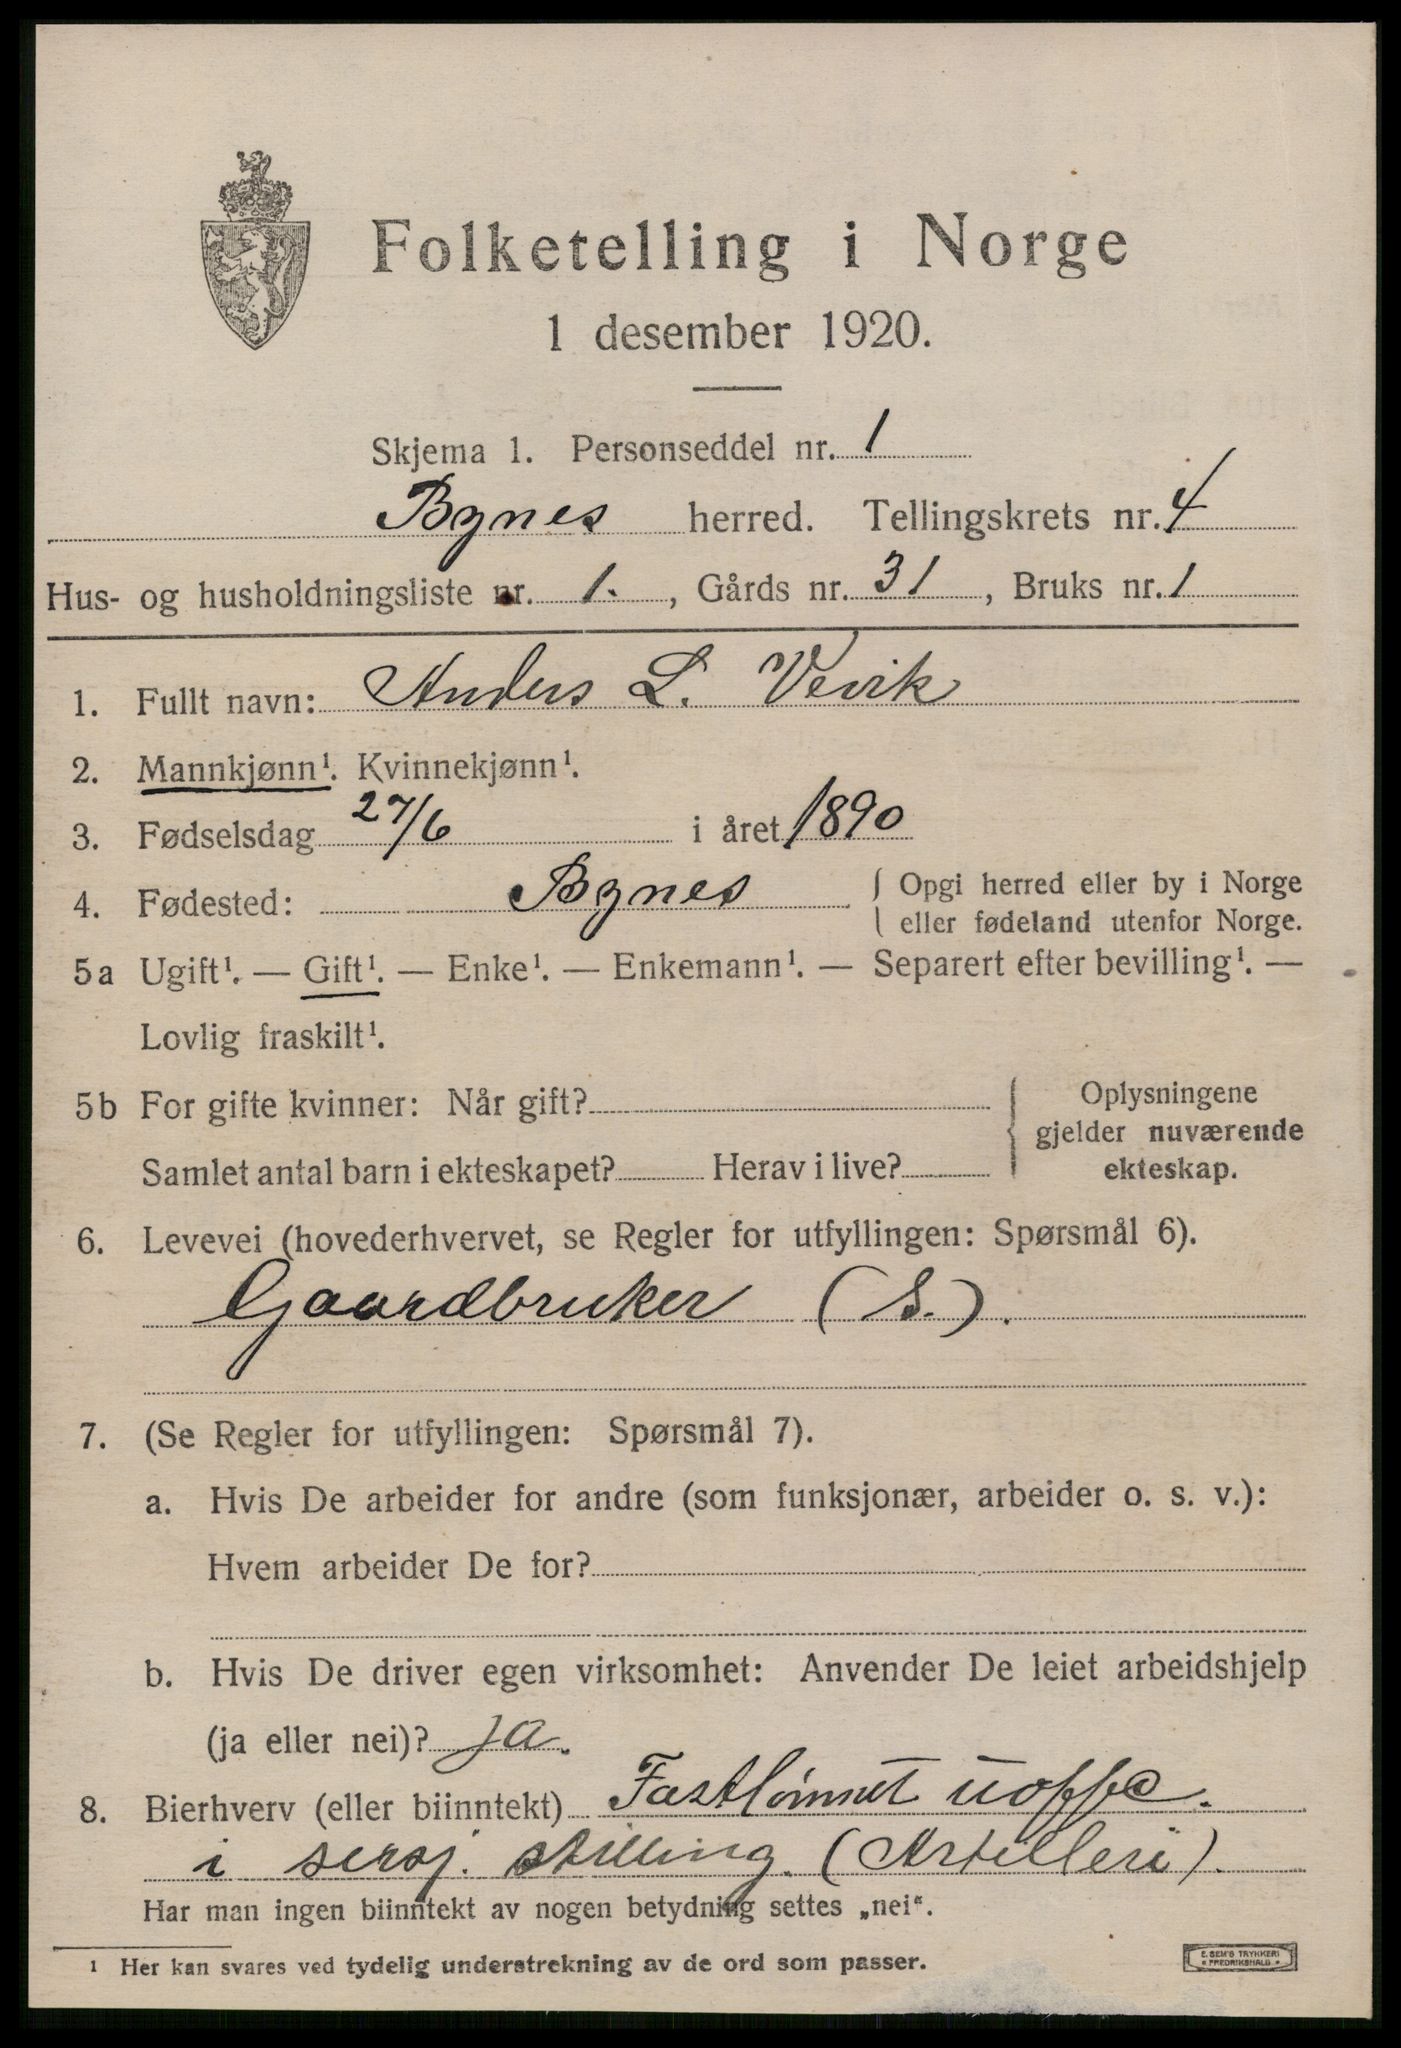 Folketelling i Norge
1 desember 1920.
Skjema 1. Personseddel nr. 1
Bynes herred. Tellingskrets nr. 4
Hus- og husholdningsliste nr. 1. , Gårds nr. 31 , Bruks nr. 1
1. Fullt navn: Anders L. Vevik
2. Mannkjønn¹. Kvinnekjønn¹.
3. Fødselsdag 27/6 i året 1890
4. Fødested: Bynes { Opgi herred eller by i Norge
eller fødeland utenfor Norge.
5a Ugift¹. — Gift¹. — Enke¹. — Enkemann¹. — Separert efter bevilling¹. —
Lovlig fraskilt¹.
5b For gifte kvinner: Når gift? { Oplysningene
gjelder nuværende
Samlet antal barn i ekteskapet? Herav i live? ekteskap.
6. Levevei (hovederhvervet, se Regler for utfyllingen: Spørsmål 6).
Gaardbruker (S.).
7. (Se Regler for utfyllingen: Spørsmål 7).
a. Hvis De arbeider for andre (som funksjonær, arbeider o. s. v.):
Hvem arbeider De for?
b. Hvis De driver egen virksomhet: Anvender De leiet arbeidshjelp
(ja eller nei)? ja.
8. Bierhverv (eller biinntekt) Fastlønnet uoffc.
i sersj. stilling. (Artilleri).
Har man ingen biinntekt av nogen betydning settes „nei“.
¹ Her kan svares ved tydelig understrekning av de ord som passer.
E. SEM'S TRYKKERI
* FREDRIKSHALD *